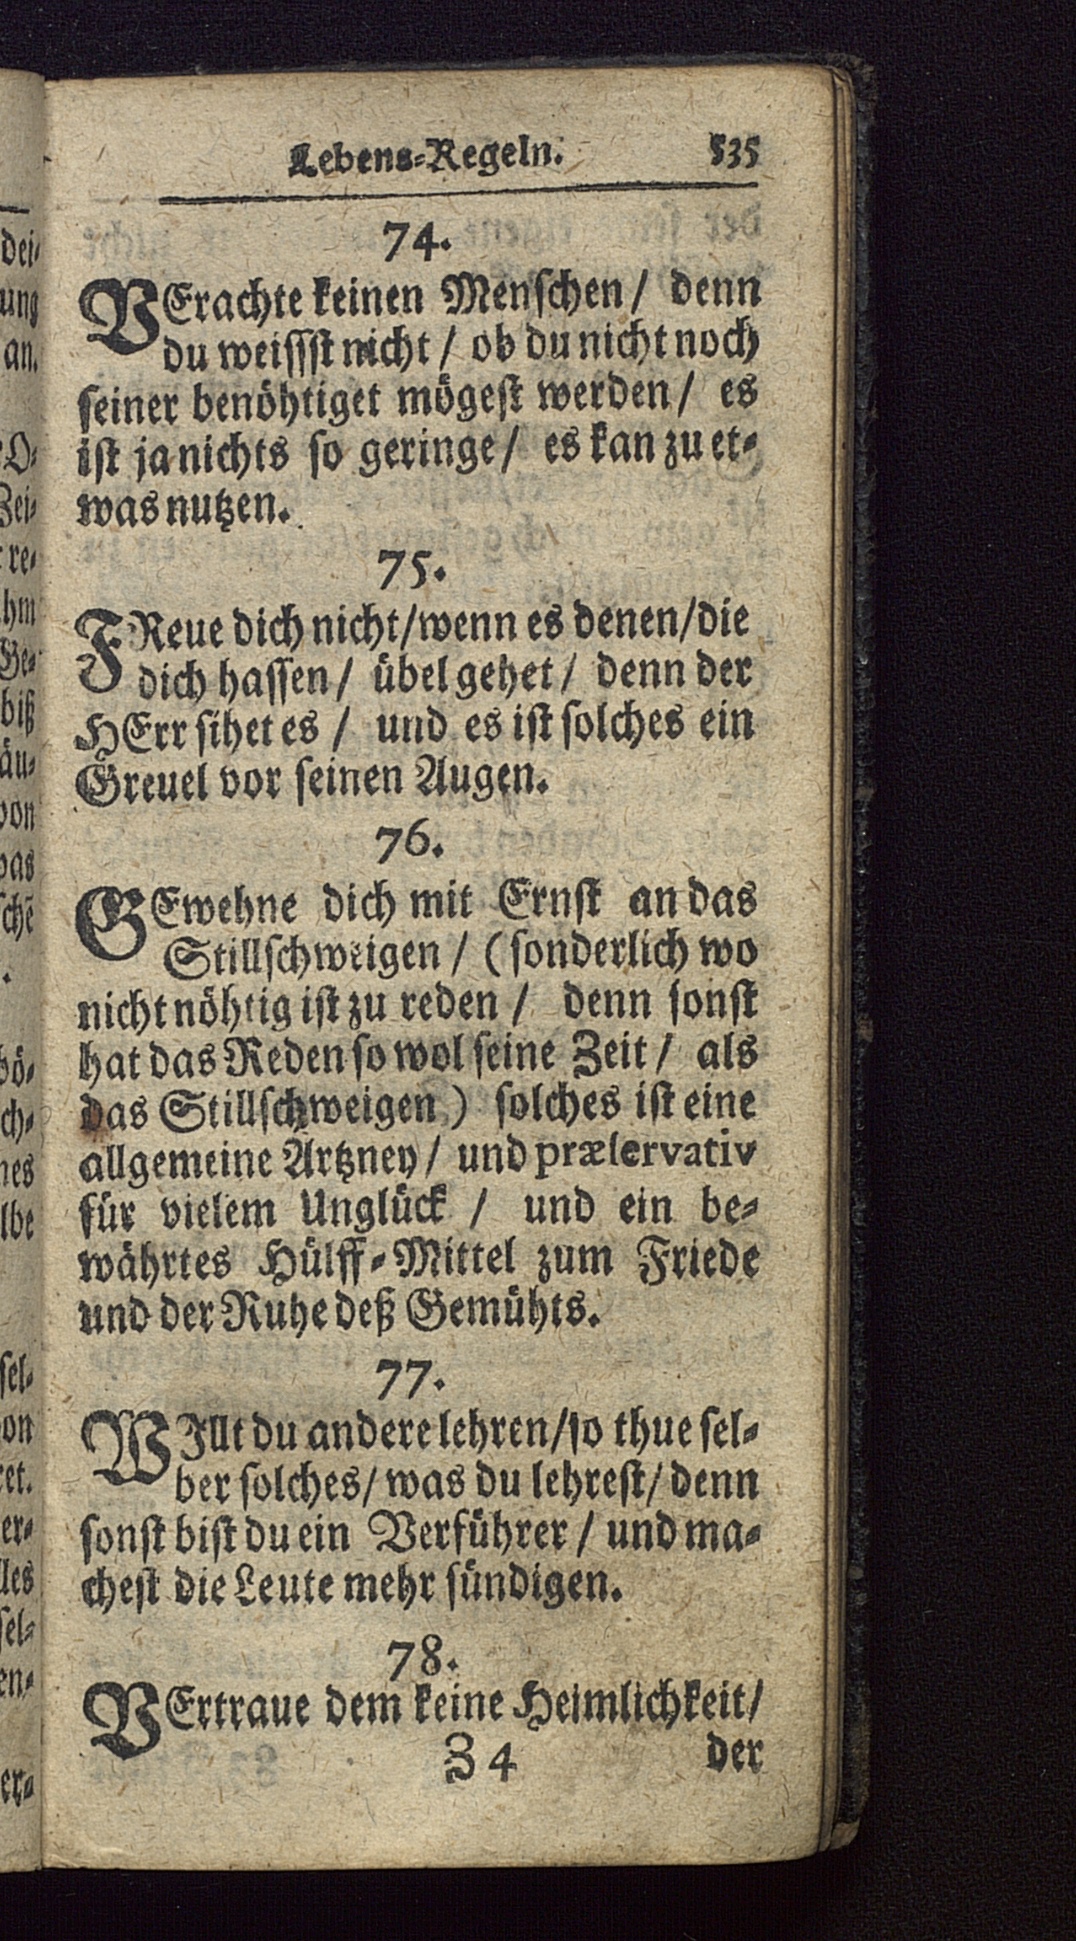 Lebens-Regeln. 535
74.
VErachte keinen Menschen / denn
du weissst nicht / ob du nicht noch
seiner benöhtiget mögest werden / es
ist ja nichts so geringe / es kan zu et-
was nutzen.
75.
FReue dich nicht / wenn es denen / die
dich hassen / übel gehet / denn der
HErr sihet es / und es ist solches ein
Greuel vor seinen Augen.
76.
GEwehne dich mit Ernst an das
Stillschweigen / (sonderlich wo
nicht nöhtig ist zu reden / denn sonst
hat das Reden so wol seine Zeit / als
das Stillschweigen) solches ist eine
allgemeine Artzney / und præservativ
für vielem Unglück / und ein be-
währtes Hülff-Mittel zum Friede
und der Ruhe deß Gemühts.
77.
WIllt du andere lehren / so thue sel-
ber solches / was du lehrest / denn
sonst bist du ein Verführer / und ma-
chest die Leute mehr sündigen.
78.
VErtraue dem keine Heimlichkeit /
Z 4 der